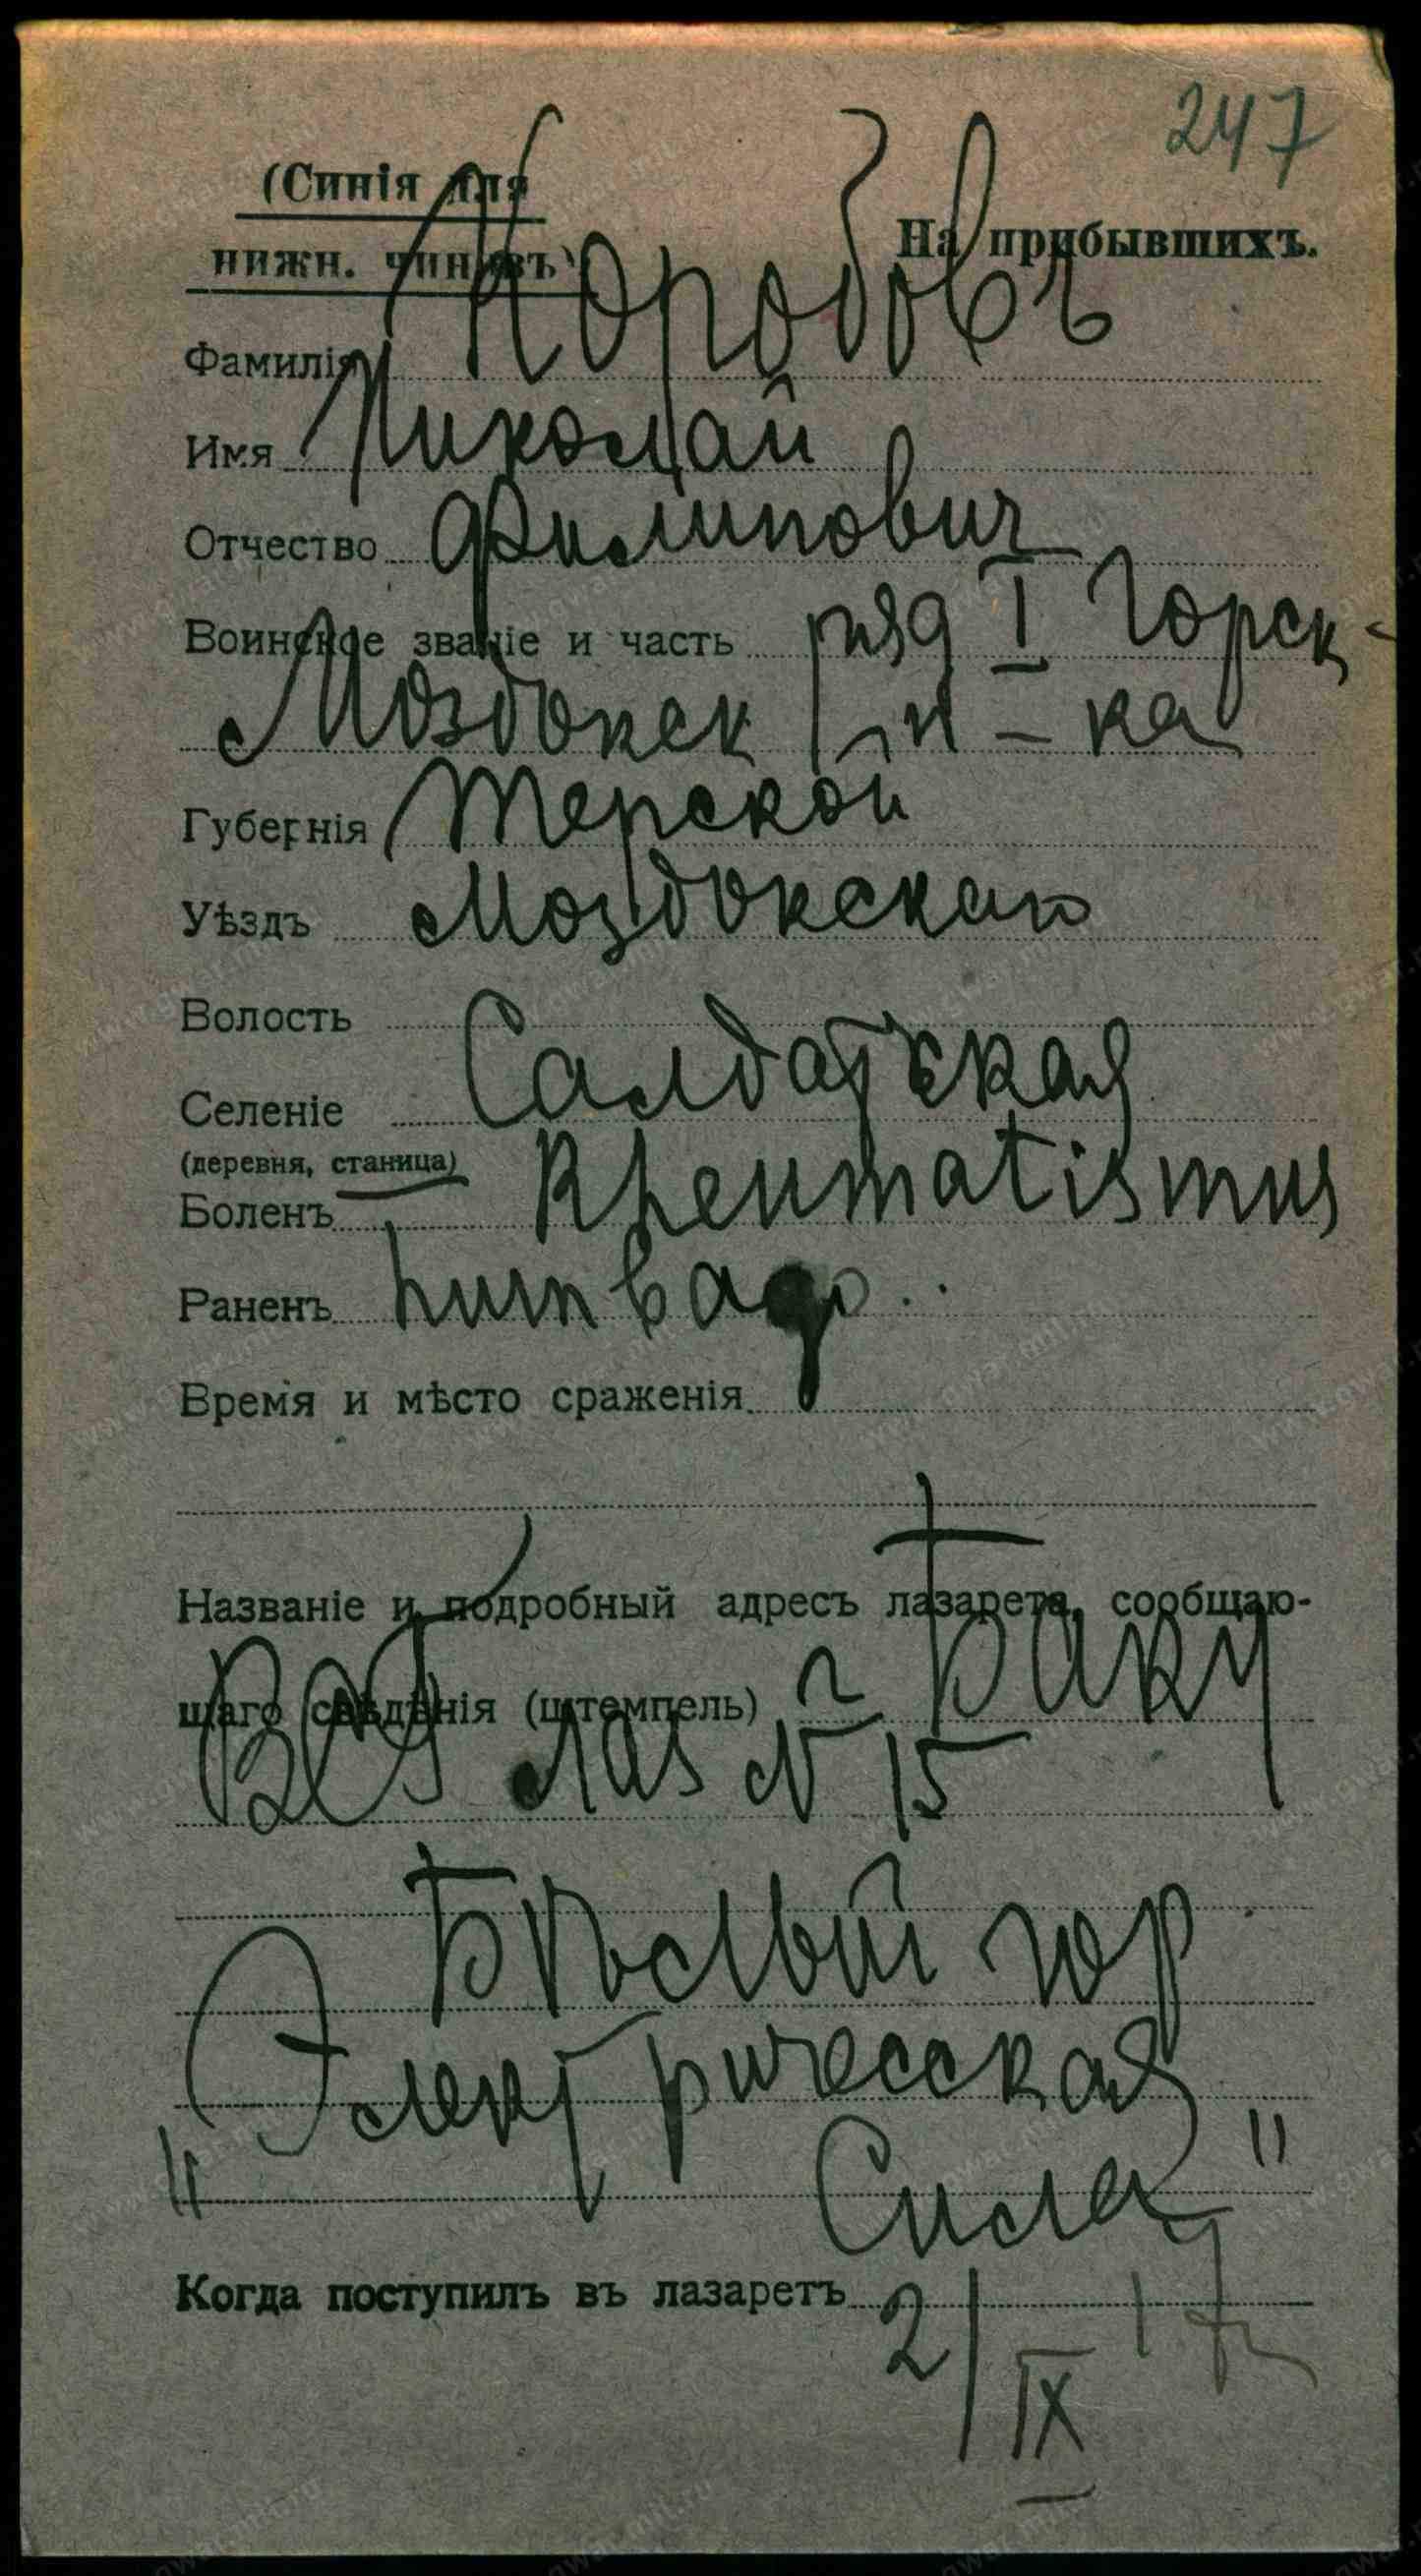 247
(Синія для
нижн. чиновъ)
На прибывшихъ.
Фамилія Коробовъ
Имя Николай
Отчество Филипович
Воинское званіе и часть ряд I Горск-
Моздокск п-ка
Губернія Терской
Уѣздъ Моздокскаго
Волость
Селеніе Салдатская
(деревня, станица)
Боленъ Rheumatismus
Раненъ Lumbago
Время и мѣсто сраженія
Названіе и подробный адресъ лазарета, сообщаю-
щаго свѣдѣнія (штемпель) г Баку
ВСГ Лаз № 15
Бѣлый гор
"Электрическая
Сила"
Когда поступилъ въ лазаретъ 2/IX 17